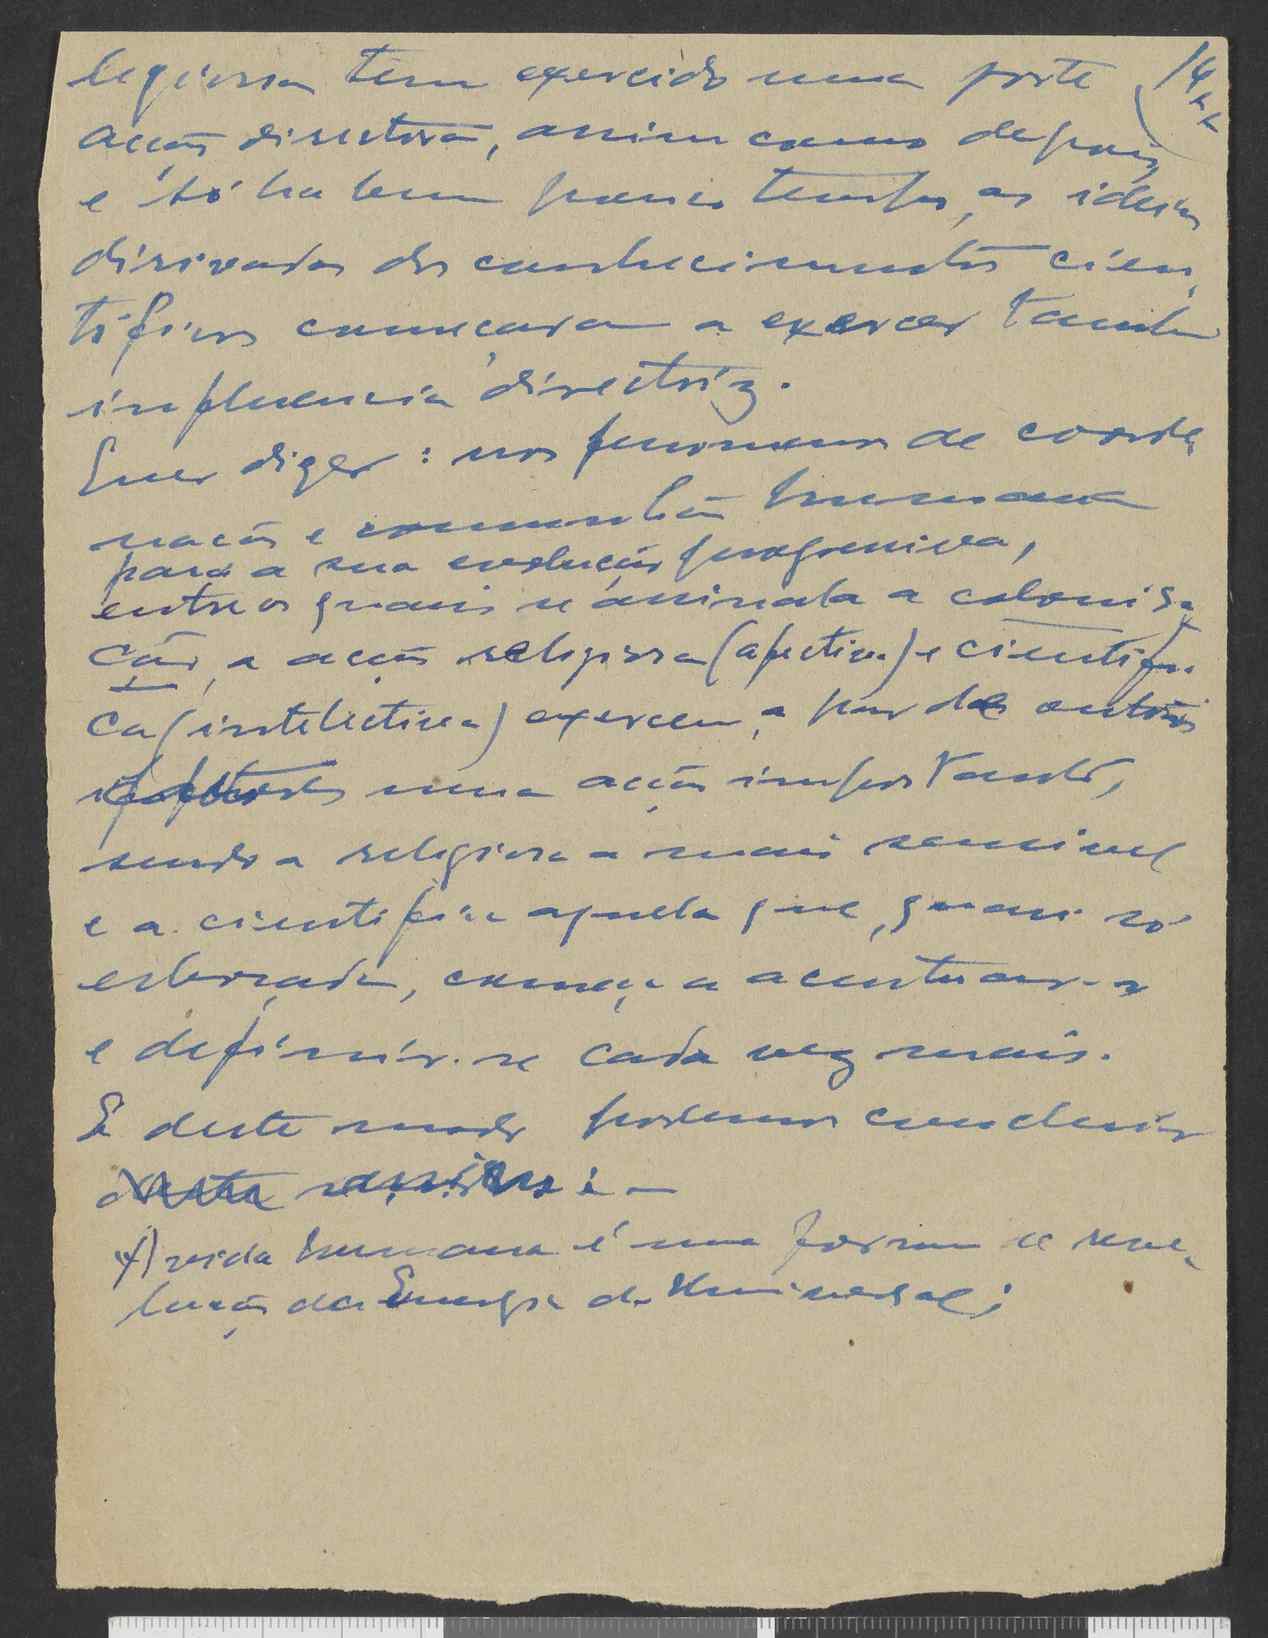 legiosa tem exercido uma forte
14
acção directora, assim como depois,
e só ha bem pouco tempo, as ideias
dirivadas dos conhecimentos cien
tificos começaram a exercer tambem
influencia directriz.
Quer dizer: nos fenomenos de coorde
nação e comunhão humana
para a sua evolução progressiva,
entre os quais se assinala a colonisa
ção, a acção religiosa (afectiva) e cientifi
ca (intelectiva) exercem, a par de outros
uma acção importante,
sendo a religiosa a mais sensivel
e a cientifica aquela que, quasi só
esboçada, começa a acentuar-se
e definir-se cada vez mais.
E deste modo podemos concluir
:—
A vida humana é uma forma de reve
lação da Energia do Universal;